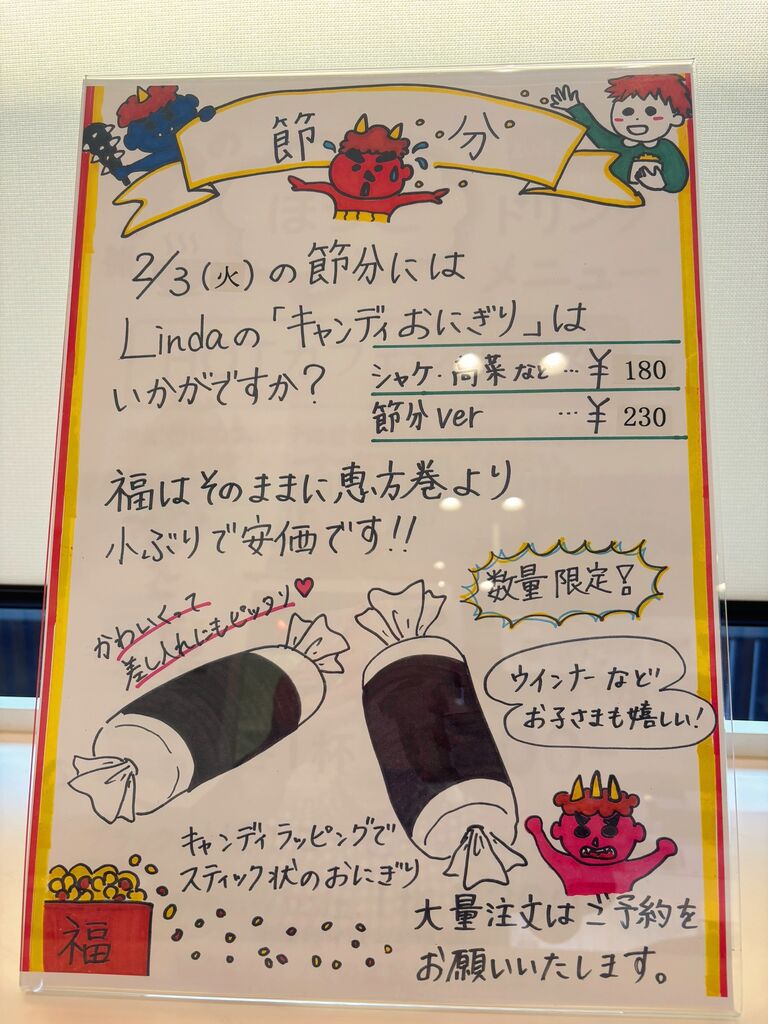 節分
2/3(火)の節分には
Lindaの「キャンディおにぎり」は
いかがですか?
シャケ・高菜など…¥180
節分ver …¥230
福はそのままに恵方巻より
小ぶりで安価です!!
数量限定!
かわいくって
差し入れにもピッタリ♥
ウインナーなど
お子さまも嬉しい!
キャンディラッピングで
スティック状のおにぎり
福
大量注文はご予約を
お願いいたします。